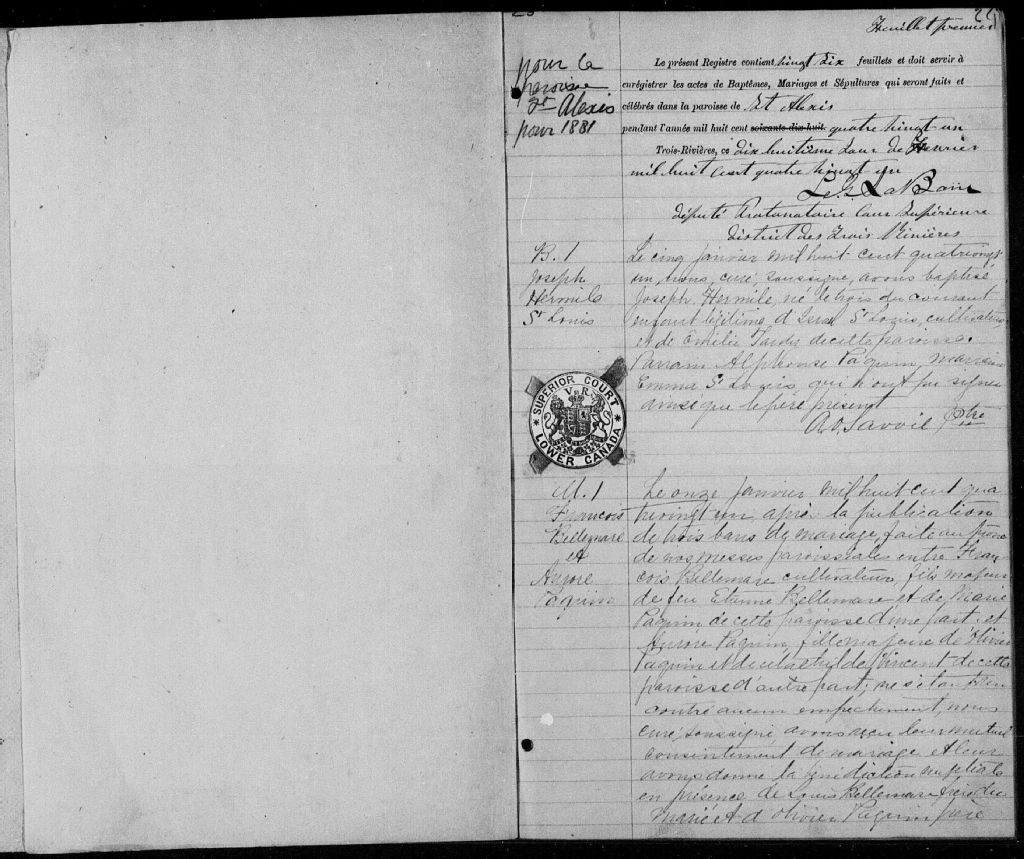 22
Feuillet premier
pour la
paroisse
St Alexis
pour 1881
Le présent Registre contient vingt dix feuillets et doit servir à
enrégistrer les actes de Baptêmes, Mariages et Sépultures qui seront faits et
célébrés dans la paroisse de St Alexis
pendant l'année mil huit cent soixante-dix-huit quatre vingt-un
Trois-Rivières, ce dix huitième Jour de Fevrier
mil huit cent quatre vingt un
député Protonotaire Cour Supérieure
district des Trois Rivières
B. 1
Joseph
Hermile
St Louis
Le cinq janvier mil huit cent quatrevingt
un, nous, curé, soussigné, avons baptisé
Joseph Hermile, né le trois du courant
enfant légitime d'Israel St Louis, cultivateur
et de Emélie Tardif de cette paroisse.
Parrain Alphonse Paquin, marraine
Emma St Louis, qui n'ont pu signer
ainsi que le père présent
A. O. Savoie, Ptre
SUPERIOR COURT
V R
LOWER CANADA
M. 1
Francois
Bellemare
et
Aurore
Paquin
Le onze janvier mil huit cent qua
trevingt un après la publication
de trois bans de mariage, faite au prone
de nos messes paroissiales entre Fran
cois Bellemare cultivateur, fils majeur
de feu Etienne Bellemare et de Marie
Paquin de cette paroisse d'une part; et
Aurore Paquin, fille majeure de Olivier
Paquin et de Vincent de cette
paroisse d'autre part; ne s'étant ren
contré aucun empechement, nous
curé soussigné avons reçu leur mutuel
consentement de mariage et leur
avons donné la bénédiction nuptiale
en présence de Louis Bellemare frère du
marié et d'Olivier Paquin père